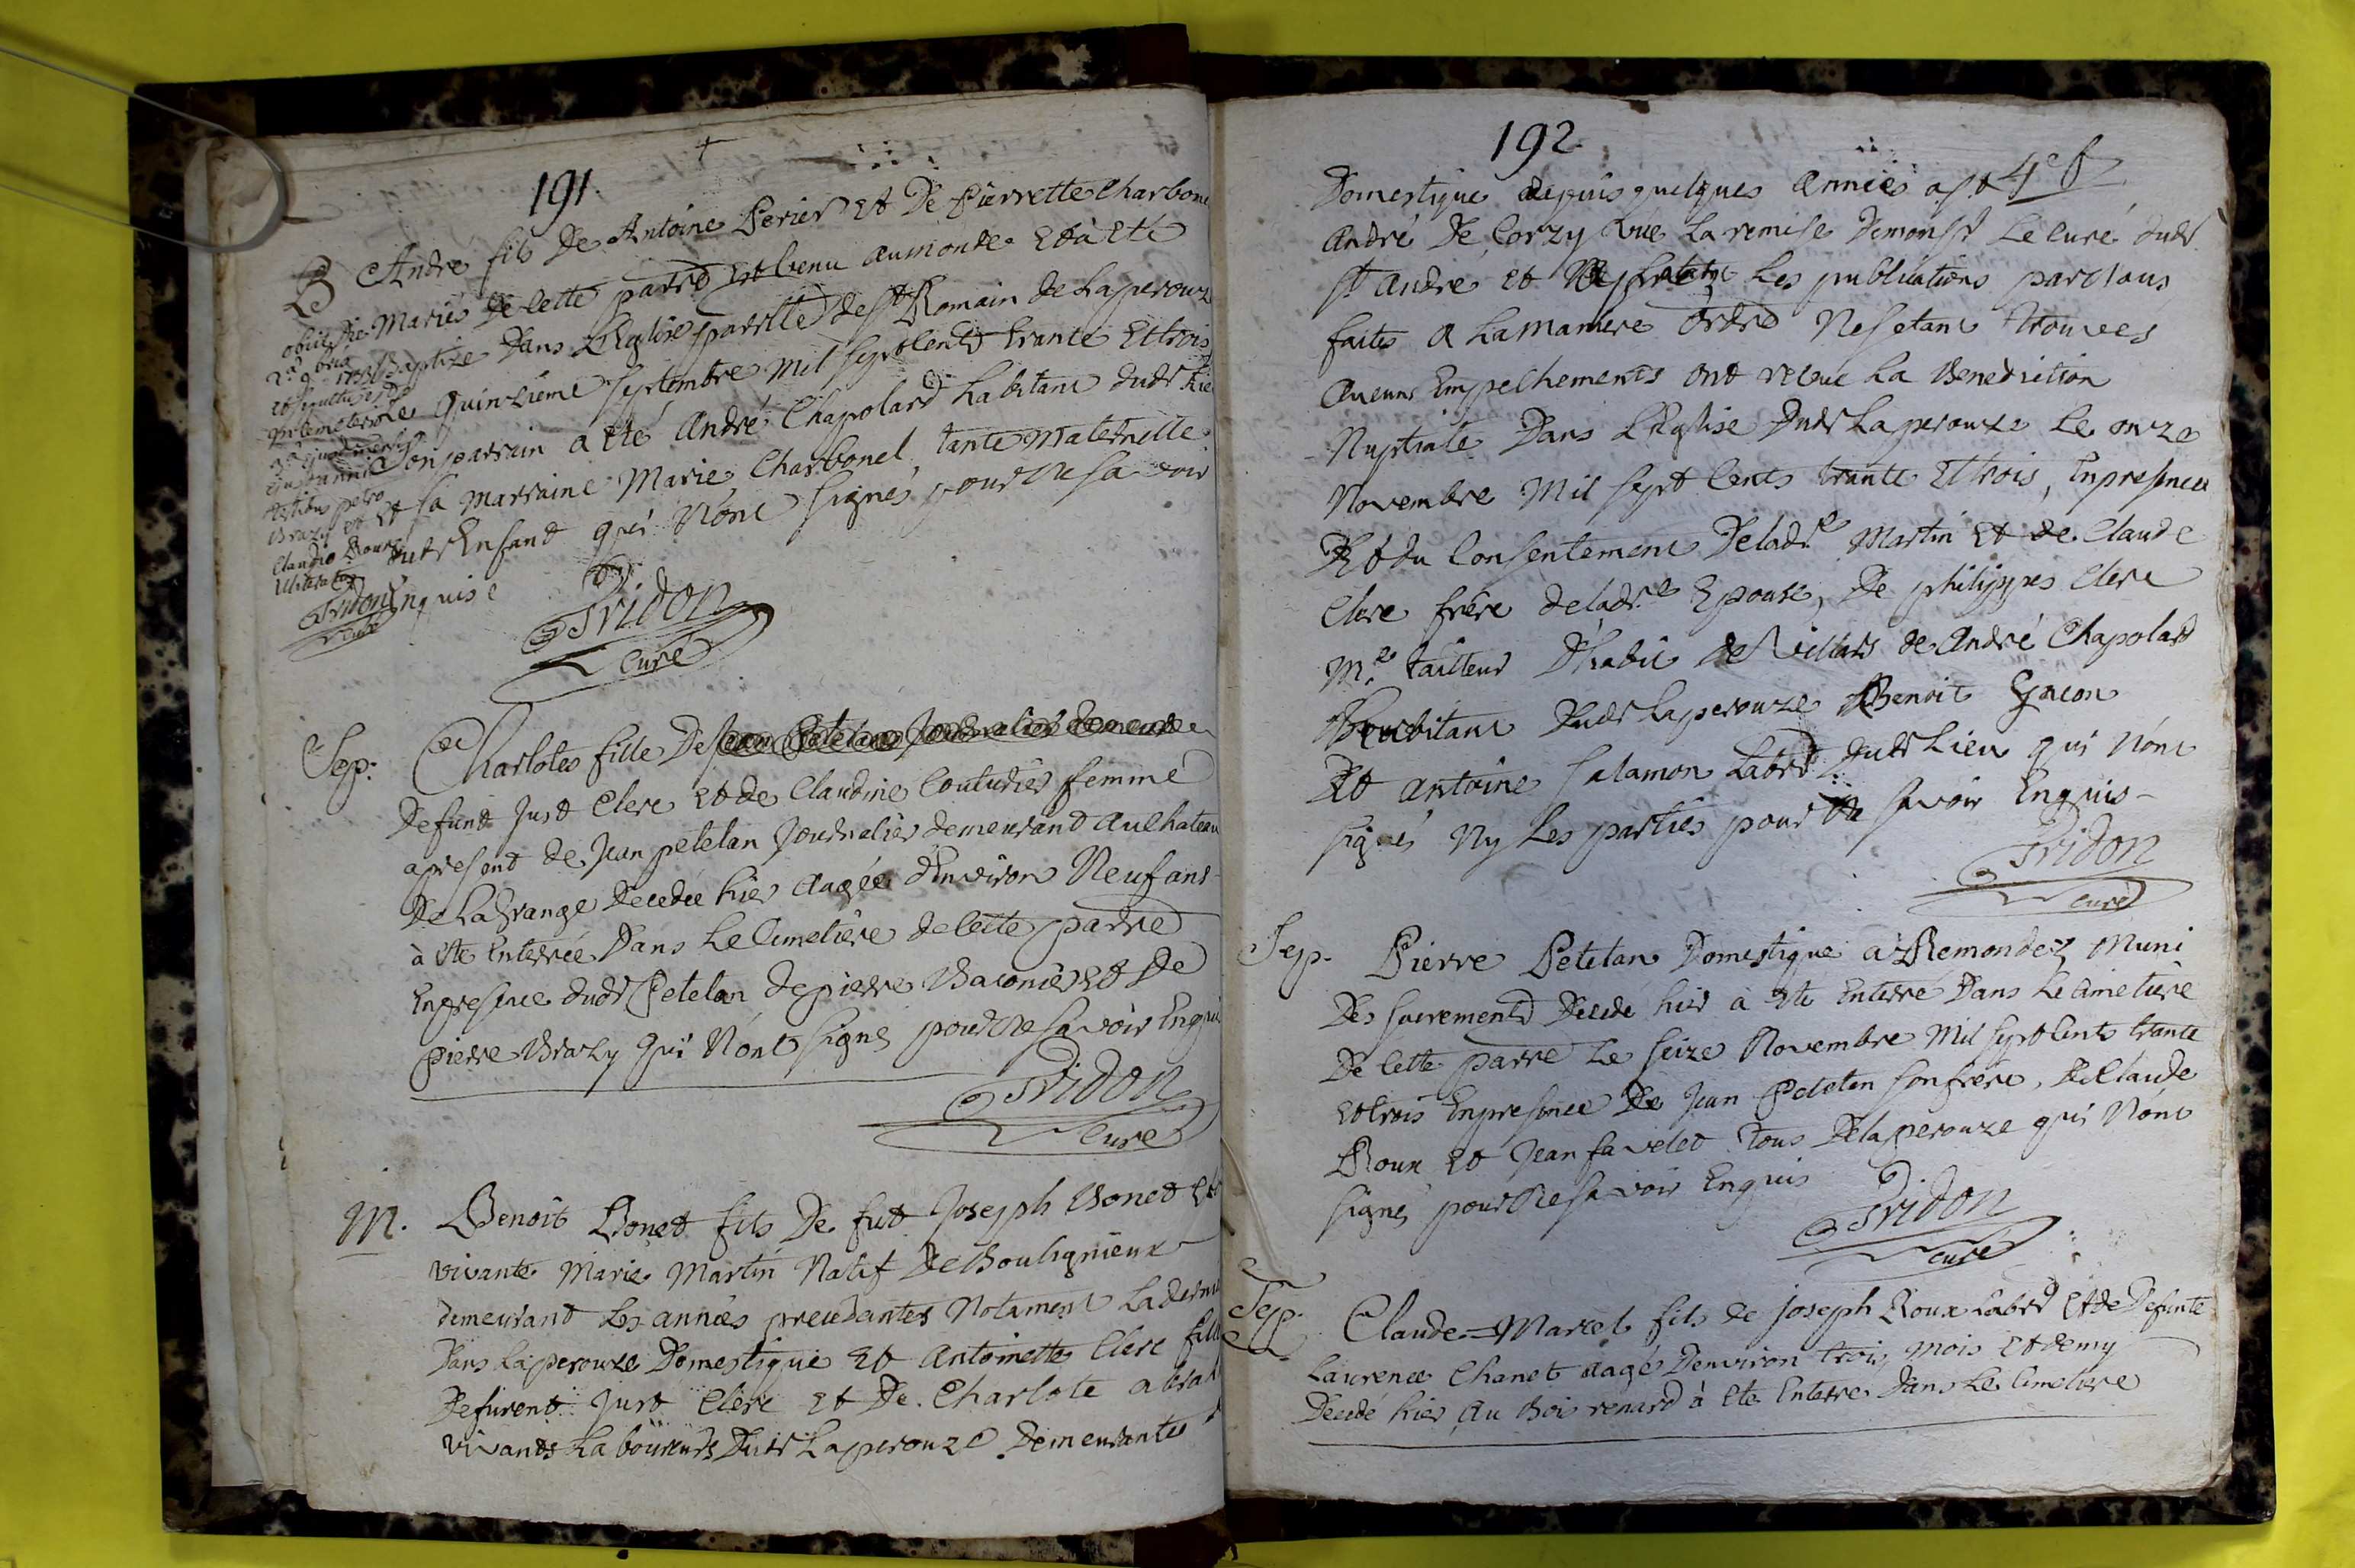 191
B André fils De Antoine Perier Et De Pierrette Charbone
Mariés De Cette parre Est venu au monde Et à Eté
Baptize Dans L'Eglise parelle de St Romain de Laperouze
le quinzième septembre Mil septCents trante Et trois
Son parrain a Eté André Chapolard habitant dudt lie
Et sa Marraine Marie Charbonel tante Maternelle
dudt Enfant qui N'ont signés pour Ne sa voir
Enquis
Tridon
Curé
obiit Die
2a 9bris
1733
Et sepultus
Coemeterio
testibus petro
Brazy et
Claudio Roux
Tridon
Curé
Sep: Charlotes fille De Jean Petetan Journalier demeura
Defunt Just Clere Et de Claudine Couturier femme
apresent de Jean petetan Journalier demeurant au Chateau
De La Grange Decedée hier Aagée d'Environ Neuf ans
à Ete Enterrée Dans Le Cimetière de Cette parre
En presence dudt Petetan de pierre Baconier Et De
pierre Brazy qui N'ont signés pour Ne savoir Enqui
Tridon
Curé
M. Benoit Bonet fils De fut Joseph Bonet Et
vivante Marie Martin Natif De Boulignieux
demeurant Les années precedantes Notament La derni
Dans Laperouze Domestique Et Antoinette Clere fille
Defurent Just Clere Et De Charlote
vivants Laboureurs Dudt Laperouze Demeurante
192
4e f
Domestique depuis quelques Années a St
André De Corzy vüe La remise De monsr Le Curé dudt
St André et Les publications par Nous
faites a La Maniere Ordre Ne setant trouvees
Aucuns Empechements Ont recue La Benediction
Nuptiale Dans L'Eglise Dudt Laperouze Le onze
Novembre Mil sept Cents trante Et trois, En presence
Et du Consentement De ladte Martin Et de Claude
Clere frère de ladte Epouse, De philippes Clere
Me tailleur D'habit de Villars de André Chapolard
habitant Dudt Laperouze Benoit Gacon
Et Antoine Salamon Labrd Dudt Lieu qui N'ont
signés Ny Les parties pour Ne savoir Enquis-
Tridon
Curé
Sep. Pierre Petetan Domestique a Remondez Muni
Des sacrements Decede hier à Ete Enterré Dans Le Cimetière
De Cette parre Le Seize Novembre Mil septCents trante
Et trois En presence De Jean Petetan son frere, De Claude
Roux Et Jean favelet Tous De Laperouze qui N'ont
signés pour Ne sa voir Enquis
Tridon
Curé
Sep. Claude=Marcel fils de Joseph Roux Labrd Et de Defunte
Laurence Chanet Aagé D'environ trois Mois Et demy
Decede hier Au Boi renard à Ete Enterre Dans Le Cimetiere